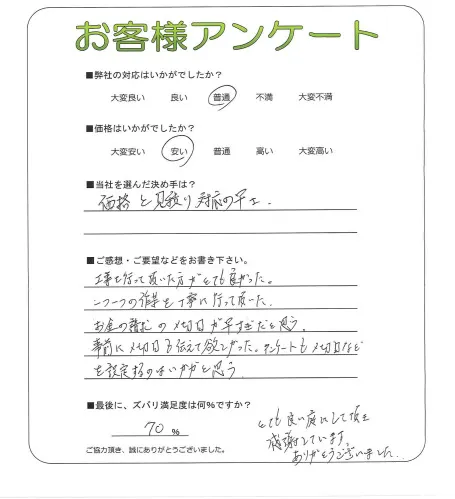 お客様アンケート
■弊社の対応はいかがでしたか?
大変良い 良い 普通 不満 大変不満
■価格はいかがでしたか?
大変安い 安い 普通 高い 大変高い
■当社を選んだ決め手は?
価格と見積り対応の早さ.
■ご感想・ご要望などをお書き下さい。
工事を行って頂いた方がとても良かった。
一つ一つの作業を丁寧に行って頂いた.
お金の 〆切日が早すぎだと思う.
事前に〆切日も伝えて欲しかった。アンケートも〆切日など
を設定するのはいかがと思う.
■最後に、ズバリ満足度は何%ですか?
70 %
とても良い庭にして頂き
感謝しています.
ありがとうございました.
ご協力頂き、誠にありがとうございました。